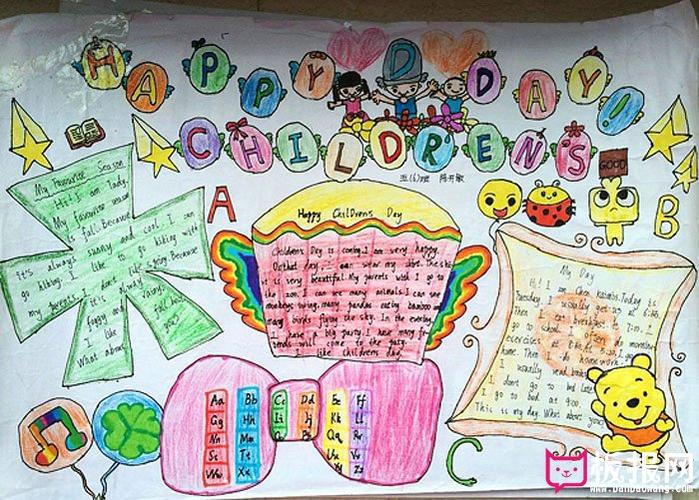 HAPPY D DAY!
CHILDREN'S
五(6)班
A
GOOD
B
My Favourite Season
Hi! I am Judy.
My favourite season
is fall. Because
it's always sunny and cool. I can
go hiking. I like to go hiking with
my parents. I don't like spring. Because
it is always
foggy and rainy.
I like fall best
What about you?
Happy Children's Day
Children's Day is coming. I am very happy.
On that day, I wear my skirt. The skirt
is very beautiful. My parents with I go to
the zoo. I can see many animals. I can see
monkeys swing, many pandas eating bamboo and
many birds flying the sky. In the evening,
I have a big party. I have many fri-
ends will come to the party.
I like children's day.
My Day
Hi! I am Chen Today is
Tuesday. I usually get up at 6:45.
Then I eat breakfast at 7:20. I
go to school. I often do morning
exercises at
home. Then I do homework.
I usually read books.
I don't go to bed late.
I go to bed at 9:00.
This is my day. What about yours?
Aa Bb Cc Dd Ee Ff
Gg Hh Ii Jj Kk Ll
Mm Nn Oo Pp Qq Rr
Ss Tt Uu Vv
Ww Xx Yy Zz
C
板报网
www.banbaowang.com